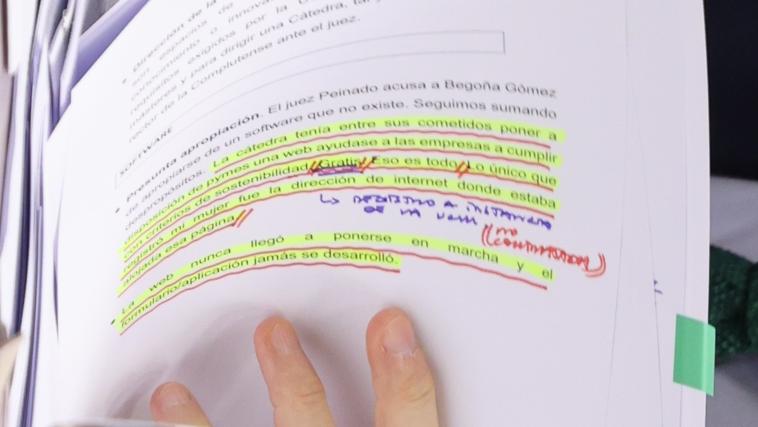 Dirección de la
son espacios de
conocimiento o innova
requisitos exigidos por la
masteres y para dirigir una Cátedra, tal y
rector de la Complutense ante el juez.
SOFTWARE
Presunta apropiación. El juez Peinado acusa a Begoña Gómez
de apropiarse de un software que no existe. Seguimos sumando
despropósitos. La cátedra tenía entre sus cometidos poner a
disposición de pymes una web ayudase a las empresas a cumplir
con criterios de sostenibilidad. Gratis. Eso es todo. Lo único que
registró mi mujer fue la dirección de internet donde estaba
alojada esa página.
DE LA
no
La web nunca llegó a ponerse en marcha y el
formulario/aplicación jamás se desarrolló.